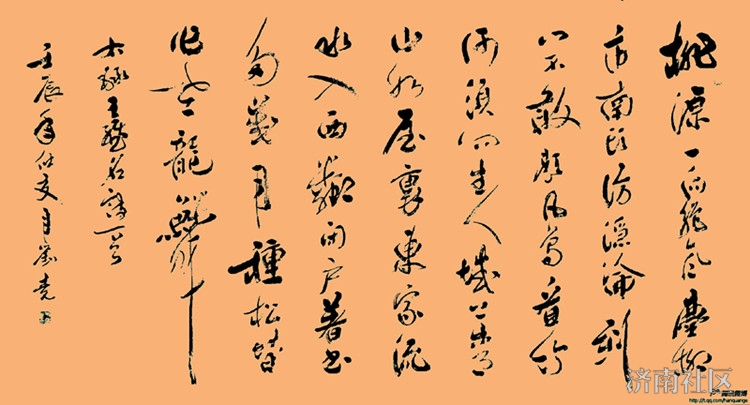 桃源一向絕風塵柳
市南頭訪隱淪到
門不敢題凡鳥看竹
何須問主人城上青
山如屋裏東家流
水入西鄰閉户著書
多歲月種松皆
作老龍鱗
右録王維名詩一首
壬辰年仲夏月劉
济南社区
腾讯微博